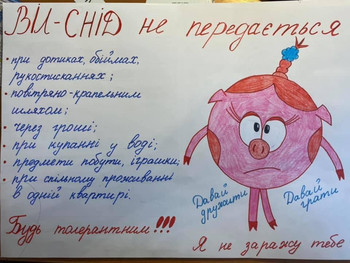 ВІЛ-СНІД не передається
• при дотиках, обіймах,
рукостисканнях;
• повітряно-крапельним
шляхом;
• через гроші;
• при купанні у воді;
• предмети побуту, іграшки;
• при спільному проживанні
в одній квартирі.
Будь толерантним!!!
Давай
дружити
Давай
грати
Я не заражу тебе